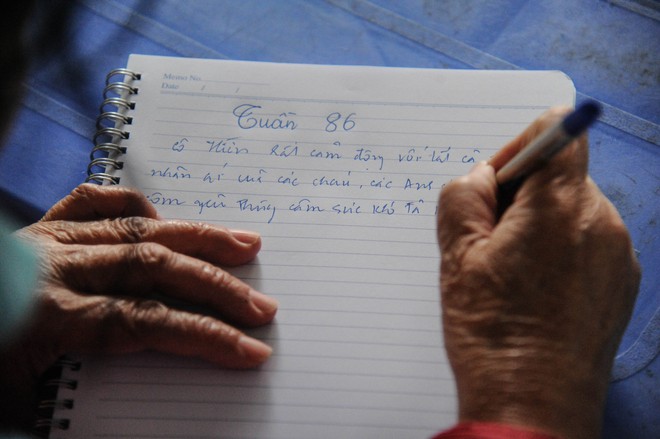 Memo No.
Date / /
Tuần 86
cô Hiền Rất cảm động với tất cả
nhân ái với các cháu, các Anh
ôm yêu thương cảm súc khó Tả